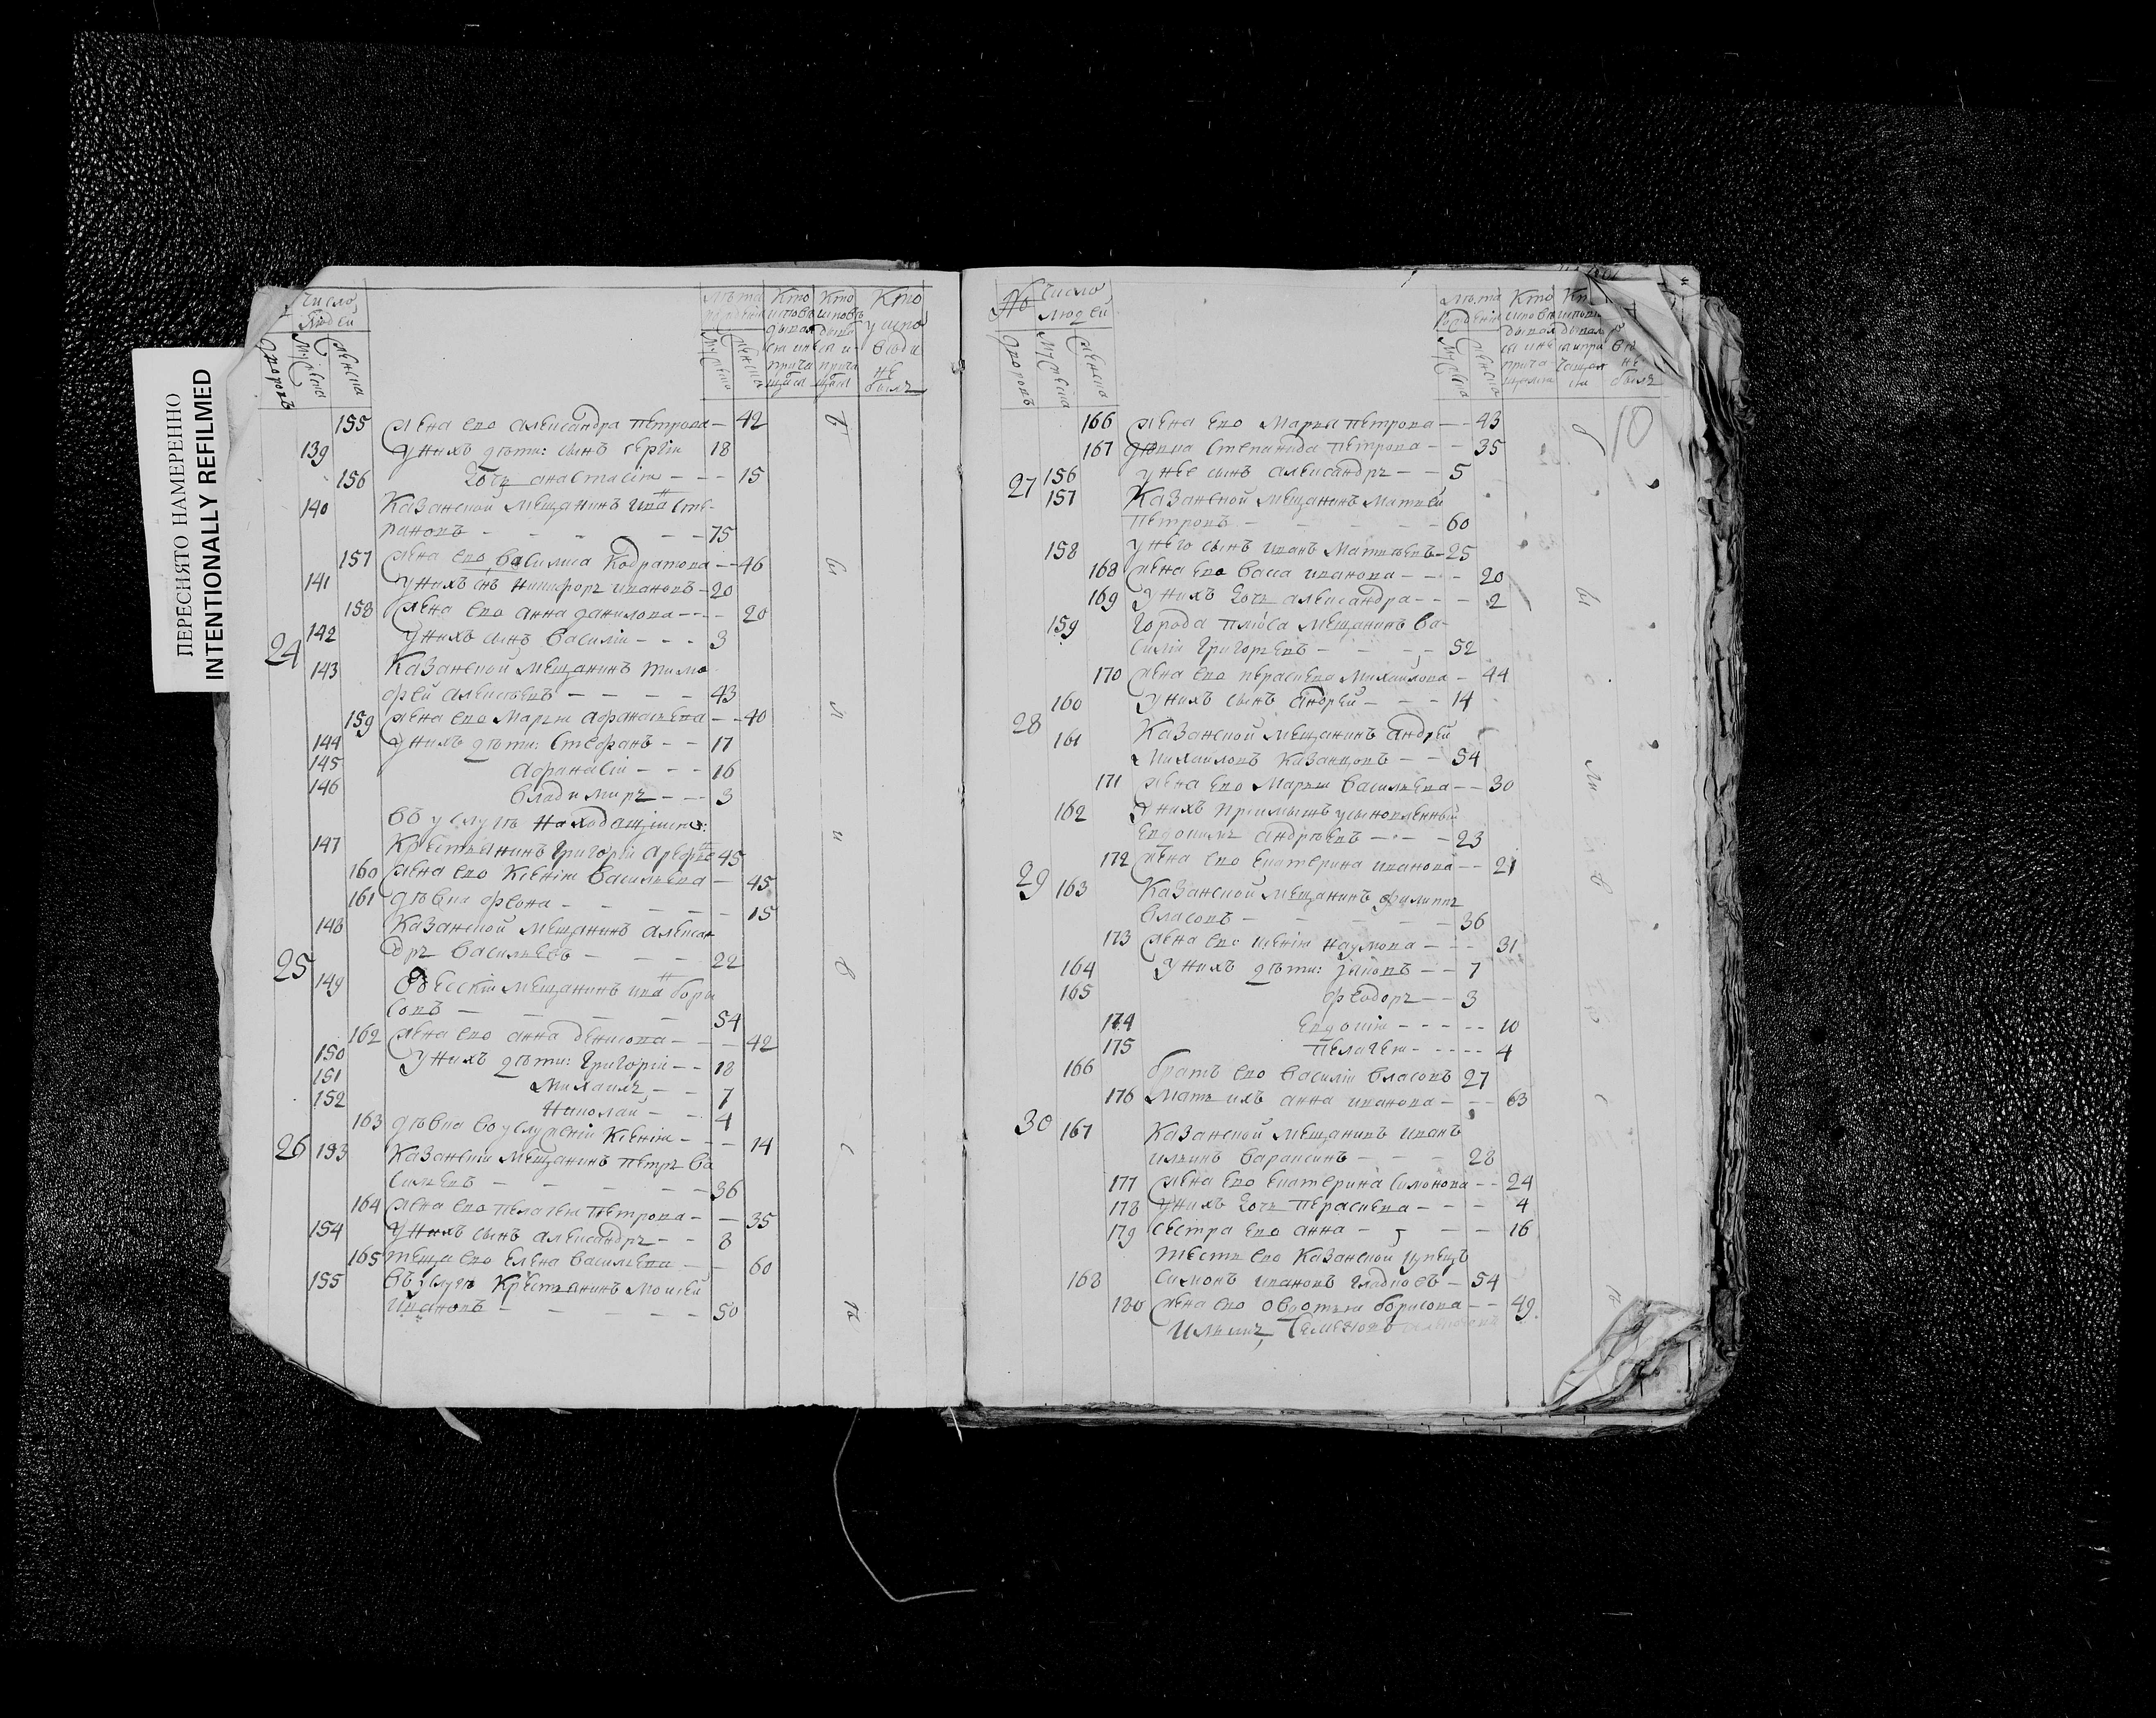 ПЕРЕСНЯТО НАМЕРЕННО
INTENTIONALLY REFILMED
Число
людей
дворовъ
мужеска
женска
Лѣта
рожденія
мужеска
женска
Кто
Кто
Кто
не
былъ
155 жена его александра петрова — 42
139 у нихъ дѣти: сынъ сергіи 18
156 дочь анастасія — — — 15
140 Казанской мещанинъ ива͏н сте-
пановъ — — — — — 75
157 жена его василиса Кодратова — — 46
141 у нихъ снъ никифоръ ивановъ — 20
158 жена его анна данилова — — — 20
142 у нихъ сынъ василіи — — — 3
24 143 Казанской мещанинъ тимо
фей алексѣевъ — — — — 43
159 жена его марья афанасьева — — 40
144 у нихъ дѣти: стефанъ — — 17
145 афанасіи — — — 16
146 владимиръ — — 3
въ услугѣ находящіися:
147 Крестьянинъ григорій 45
160 жена его Ксенія васильева — 45
161 дѣвка — — — — — 15
148 Казанской мещанинъ алексан
дръ васильевъ — — — 22
25 149 мещанинъ ива͏н бори
совъ — — — — 54
162 жена его анна денисова — — — 42
150 у нихъ дѣти: григоріи — — 18
151 михаилъ — — 7
152 николай — — 4
163 дѣвка во услуженіи Ксенія — — — 14
26 153 Казанскіи мещанинъ петръ ва
сильевъ — — — — — 36
164 жена его пелагея петрова — — 35
154 у нихъ сынъ александръ — — 8
165 теща его елена васильева — — 60
155 въ услугѣ Крестьянинъ моисей
ивановъ — — — — — 50
б
ы
л
и
в
с
ѣ
№
число
людей
дворовъ
мужеска
женска
Лѣта
рожденія
мужеска
женска
Кто
не
былъ
10
166 жена его марья петрова — — 43
167 вдова степанида петрова — — 35
156 у нее сынъ александръ — — 5
27 157 Казанской мещанинъ матвей
петровъ — — — — — 60
158 у него сынъ иванъ матвѣевъ — 25
168 жена его васса иванова — — — 20
169 у нихъ дочь александра — — — 2
159 города плюса мещанинъ ва-
силіи григорьевъ — — — 52
170 жена его параскева михайлова — 44
160 у нихъ сынъ андреи — — — 14
28 161 Казанской мещанинъ андрей
михаиловъ Казанцовъ — — 54
171 жена его марья васильева — — 30
162 у нихъ усыновленный
евдокимъ андрѣевъ — — — 23
172 жена его екатерина иванова — — 21
29 163 Казанской мещанинъ филиппъ
власовъ — — — — 36
173 жена его ксенія наумова — — — 31
164 у нихъ дѣти: яковъ — — 7
165 феодоръ — — 3
174 евдокія — — — — — 10
175 пелагея — — — — — 4
166 братъ его василіи власовъ 27
176 мать ихъ анна иванова — — — 63
30 167 Казанской мещанинъ иванъ
ильинъ — — — 28
177 жена его екатерина симонова — — 24
178 у нихъ дочь параскева — — — 4
179 сестра его анна — — — — 16
тесть его Казанской купецъ
168 симонъ ивановъ — 54
180 жена его борисова — — 49
б
ы
ли
в
с
ѣ